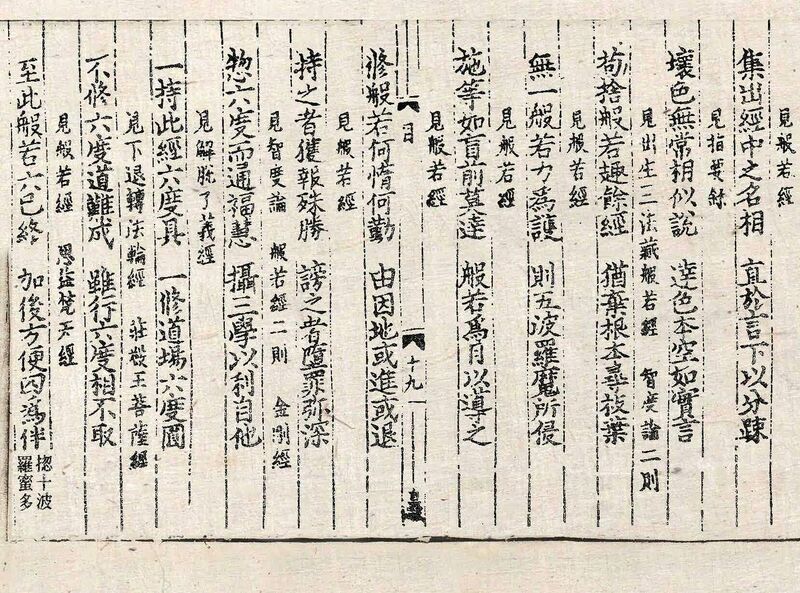 見般若經
集出經中之名相　直於言下以分踈
見指要鈔
壞色無常相似說　達色本空如實言
見出生三法藏般若經　智度論二則
苟捨般若趣餘經　猶棄根本尋枝葉
見般若經
無一般若力為護　則五波羅魔所侵
見般若經
施等如盲前莫達　般若為目以導之
見般若經
目　十九
修般若何惰何勤　由因地或進或退
見般若經
持之者獲報殊勝　謗之者墮罪弥深
見智度論　般若經二則　金剛經
惣六度而通福慧　攝三學以利自他
見解脱了義經
一持此經六度具　一修道場六度圓
見下退轉法輪經　莊嚴王菩薩經
不修六度道難成　雖行六度相不取
見般若經　思益梵天經
至此般若六已終　加後方便因為伴
揔十波
羅蜜多